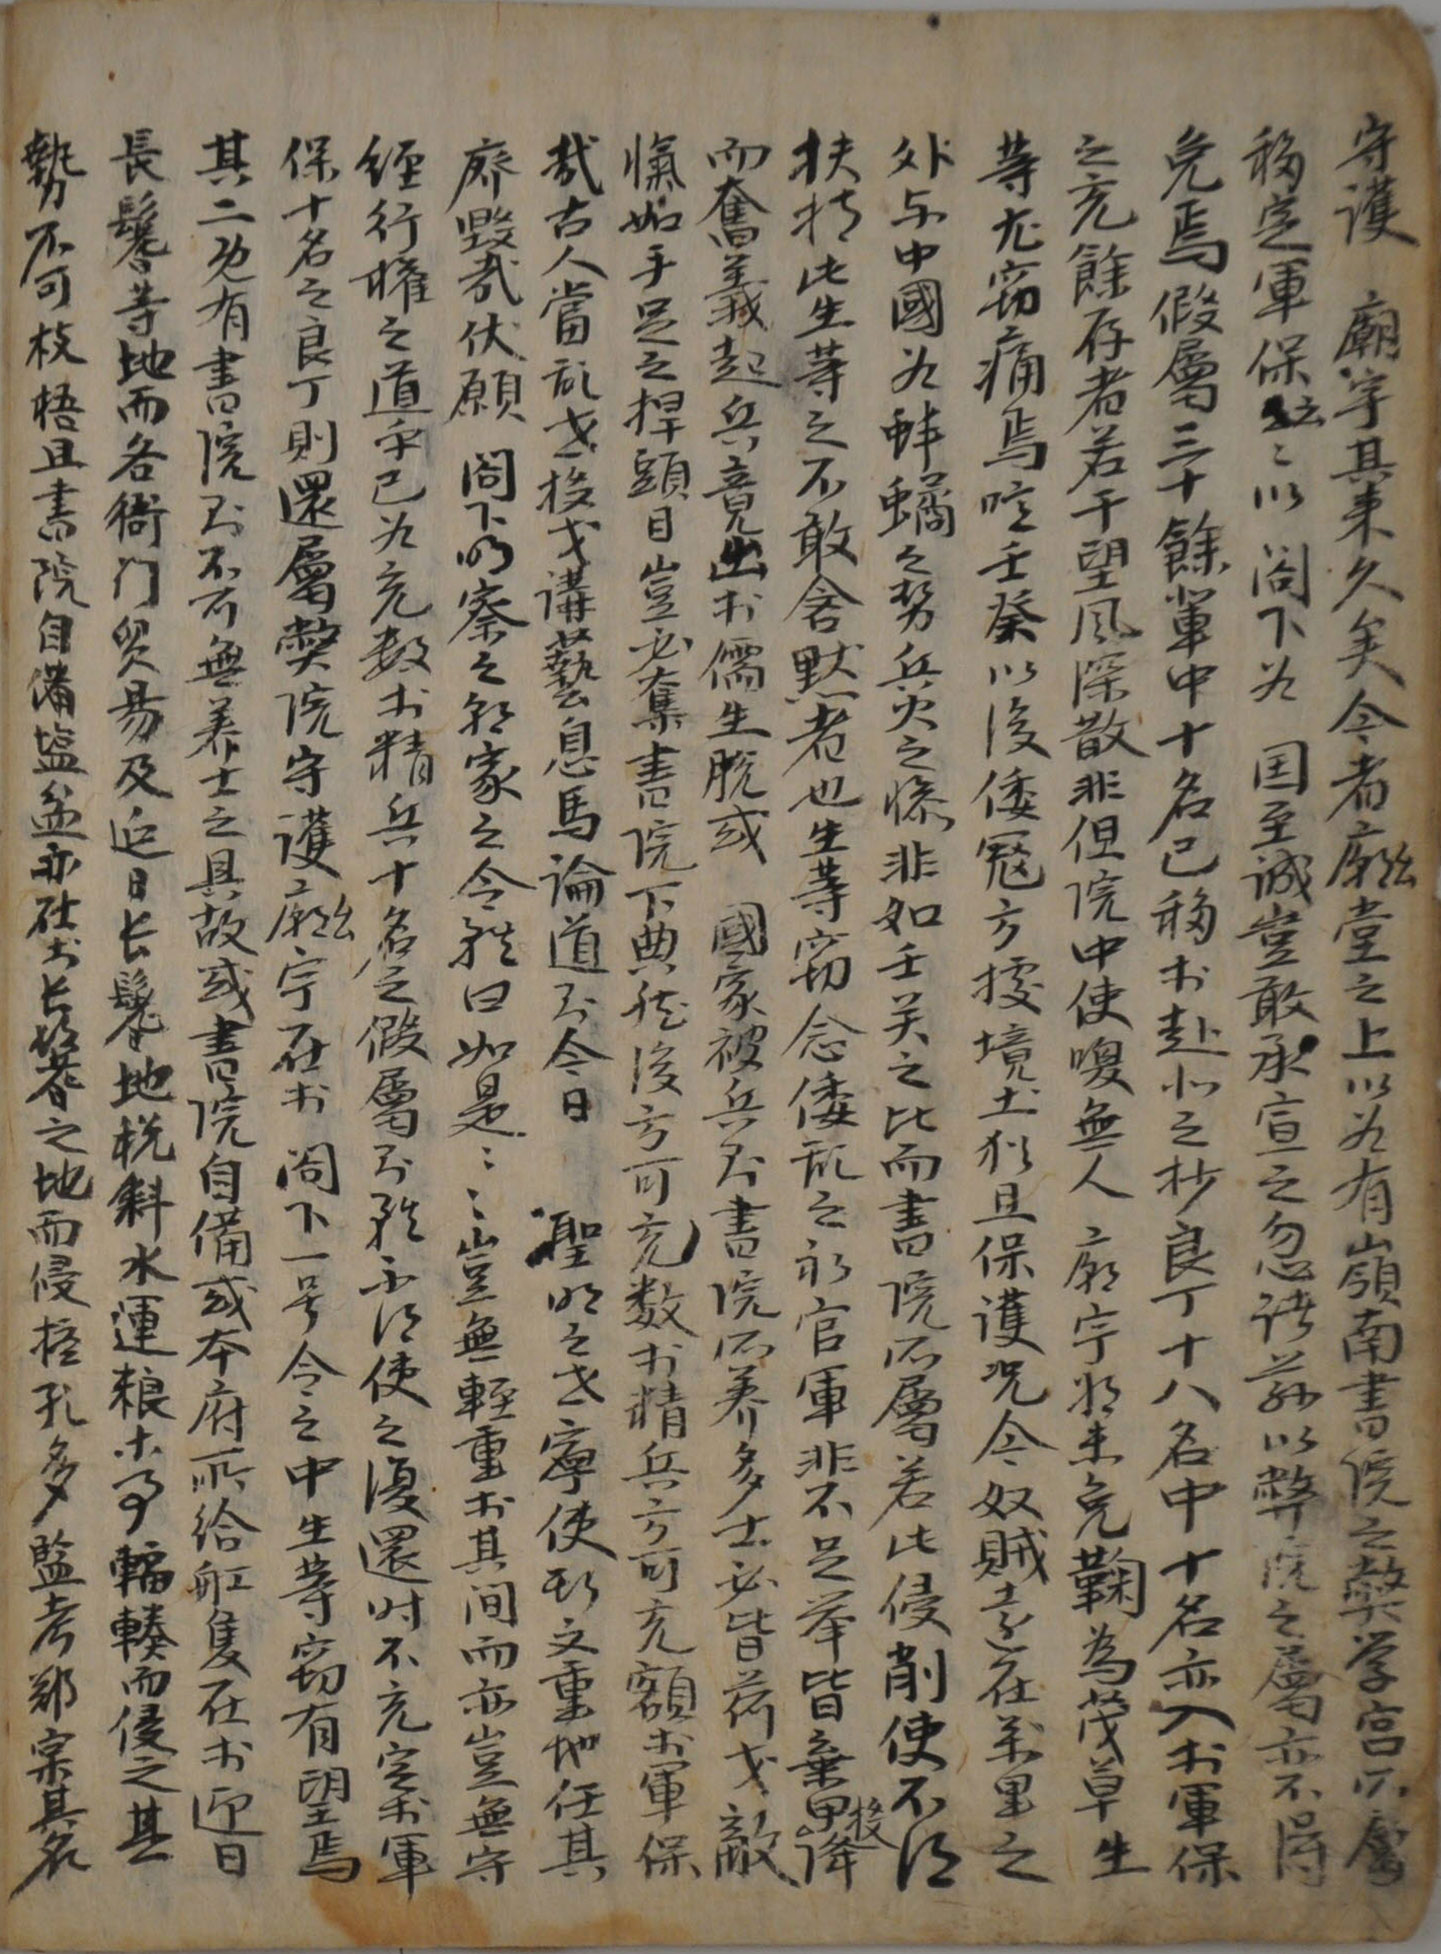 守護 廟宇其來久矣今者廟堂之上以为有嶺南書院之獘学宮所屬
移定軍保云云以 閤下为 国至誠豈敢承宣之忽諸玆以弊院之屬亦不得
免焉假屬三十餘軰中十名已移於赴北之抄良丁十八名中十名亦入於軍保
之充餘存者若干望風深散非但院中使喚無人 廟宇將未免鞠為茂草生
等尤窃痛焉噫壬癸以後倭冦方據境土猶且保護况今奴賊遠在萬里之
外与中國为蚌鷸之势兵火之慘非如壬癸之比而書院所屬若此侵削使不得
扶持此生等之不敢含默者也生等窃念倭乱之初官軍非不足举皆棄甲投降
而奮義起兵竟出於儒生脫或 國家被兵則書院所养多士必皆荷戈敵
愾如手足之捍頭目豈必奪書院下典然後方可充数於精兵方可充額於軍保
哉古人當乱世投戈講藝息馬論道則今日 聖明之世寧使斯文重地任其
廢毁哉伏願 閤下明察之朝家之令雖曰如是如是豈無輕重於其间而亦豈無守
經行權之道乎已为充数於精兵十名之假屬則雖不得使之復還时不充定於軍
保十名之良丁則還屬獘院守護廟宇在於 閤下一号令之中生等窃有望焉
其二为有書院則不可無养士之具故或書院自備或本府所给舡隻在於迎日
長鬐等地而各衙门貿易及迎日长鬐地税斜水運粮木等輻輳而侵之其
勢不可枝梧且書院自備塩盆亦在於长鬐之地而侵捱孔多監考郑宲其名